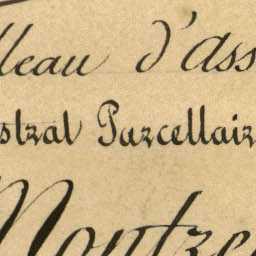 lleau d'Ass
stral Parcellair
Montre